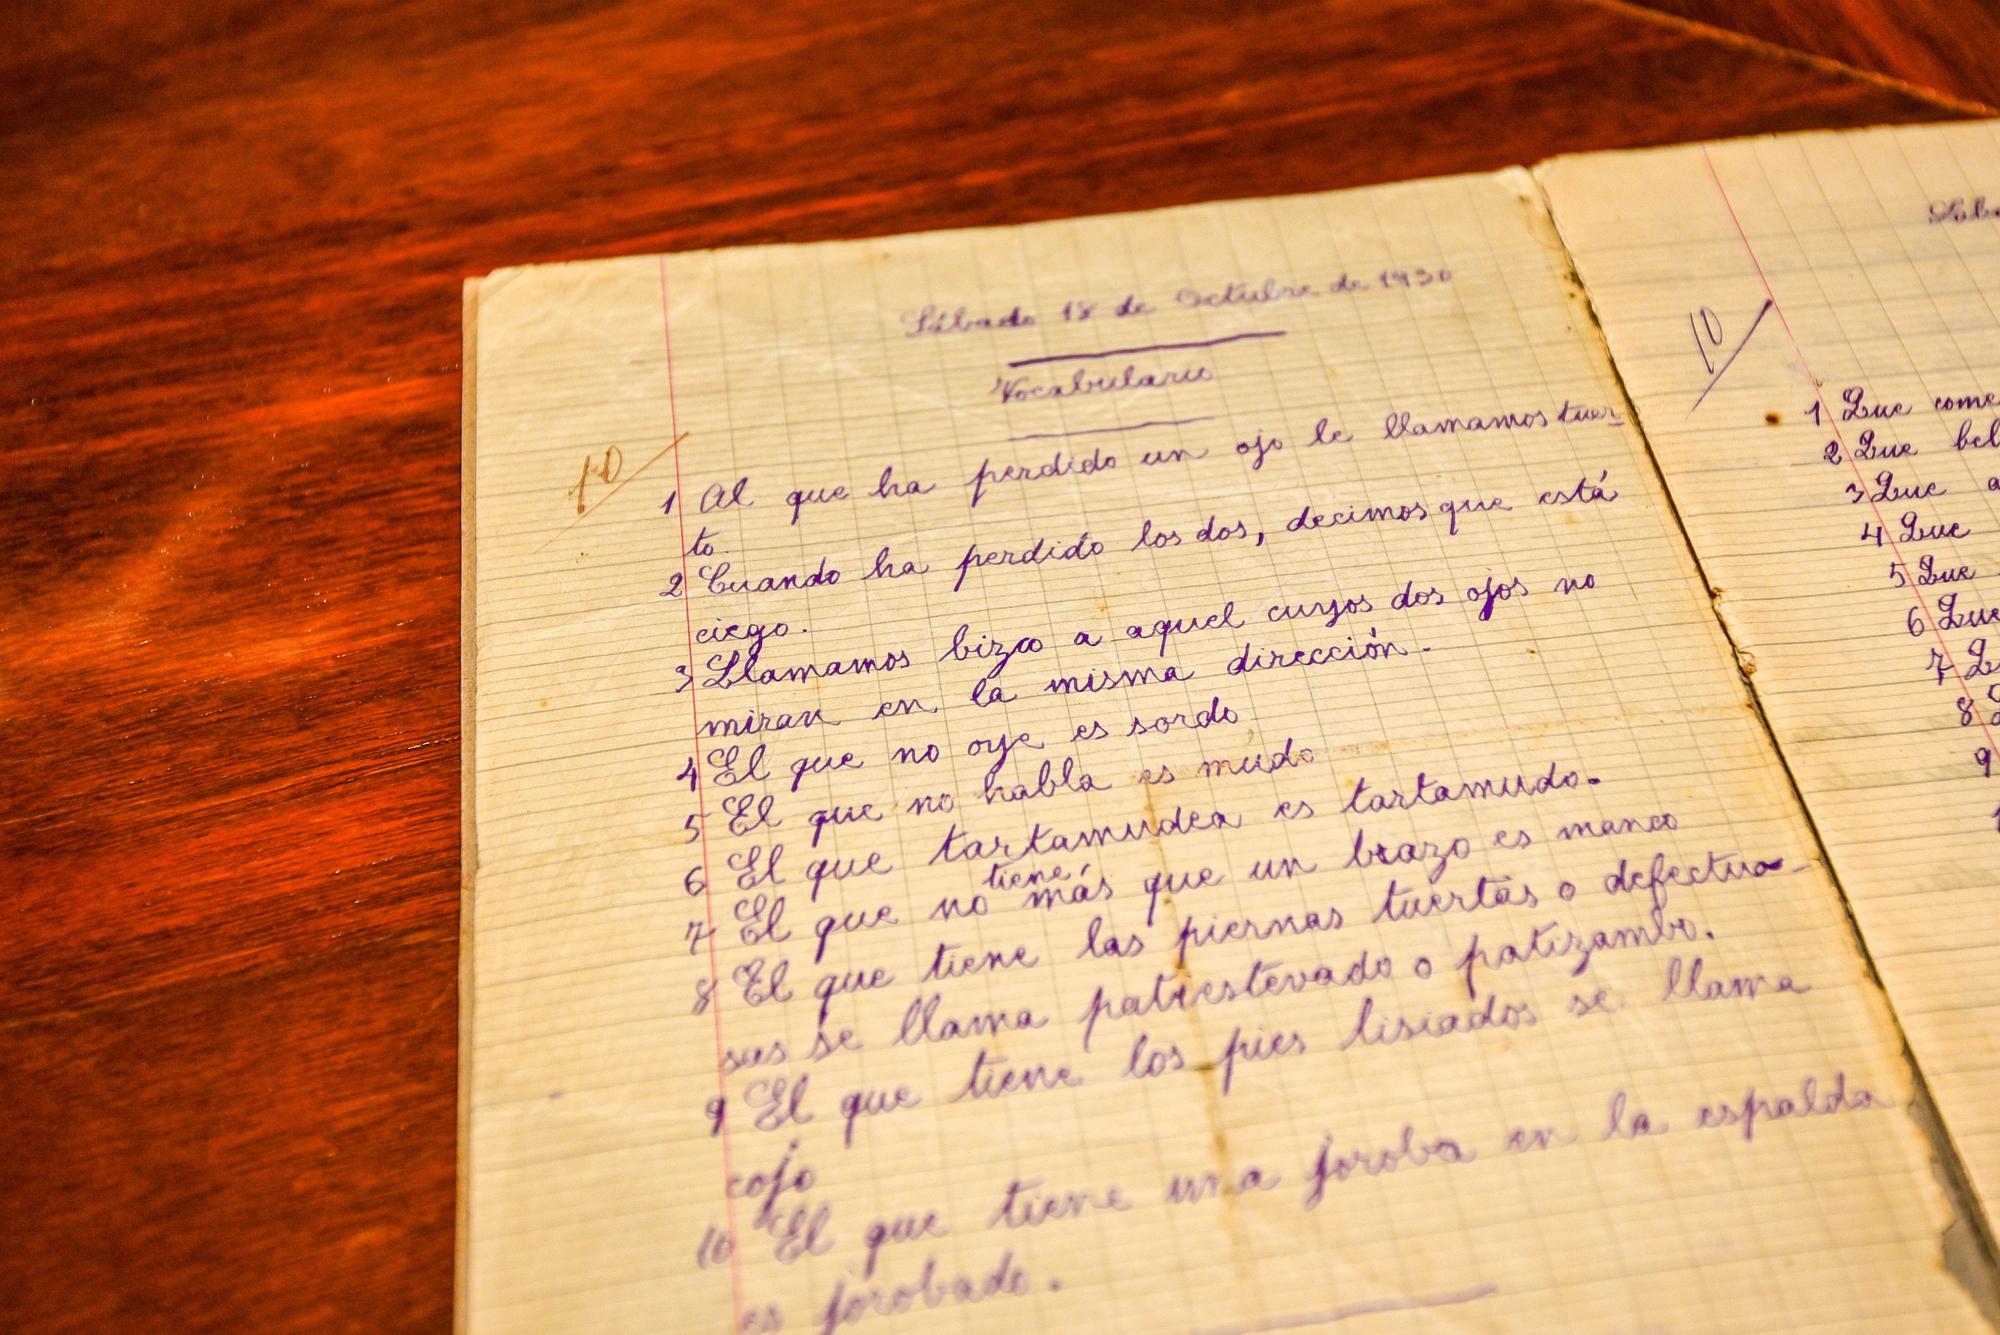 Sábado 18 de Octubre de 1930
Vocabulario
10
1 Al que ha perdido un ojo le llamamos tuer-
to.
2 Cuando ha perdido los dos, decimos que está
ciego.
3 Llamamos bizco a aquel cuyos dos ojos no
miran en la misma dirección.
4 El que no oye es sordo
5 El que no habla es mudo
6 El que tartamudea es tartamudo.
tiene
7 El que no más que un brazo es manco
8 El que tiene las piernas tuertas o defectuo-
sas se llama patiestevado o patizambo.
9 El que tiene los pies lisiados se llama
cojo
10 El que tiene una joroba en la espalda
es jorobado.
10
1 Que come
2 Que bel
3 Que a
4 Que
5 Que
6 Que
7
8
9